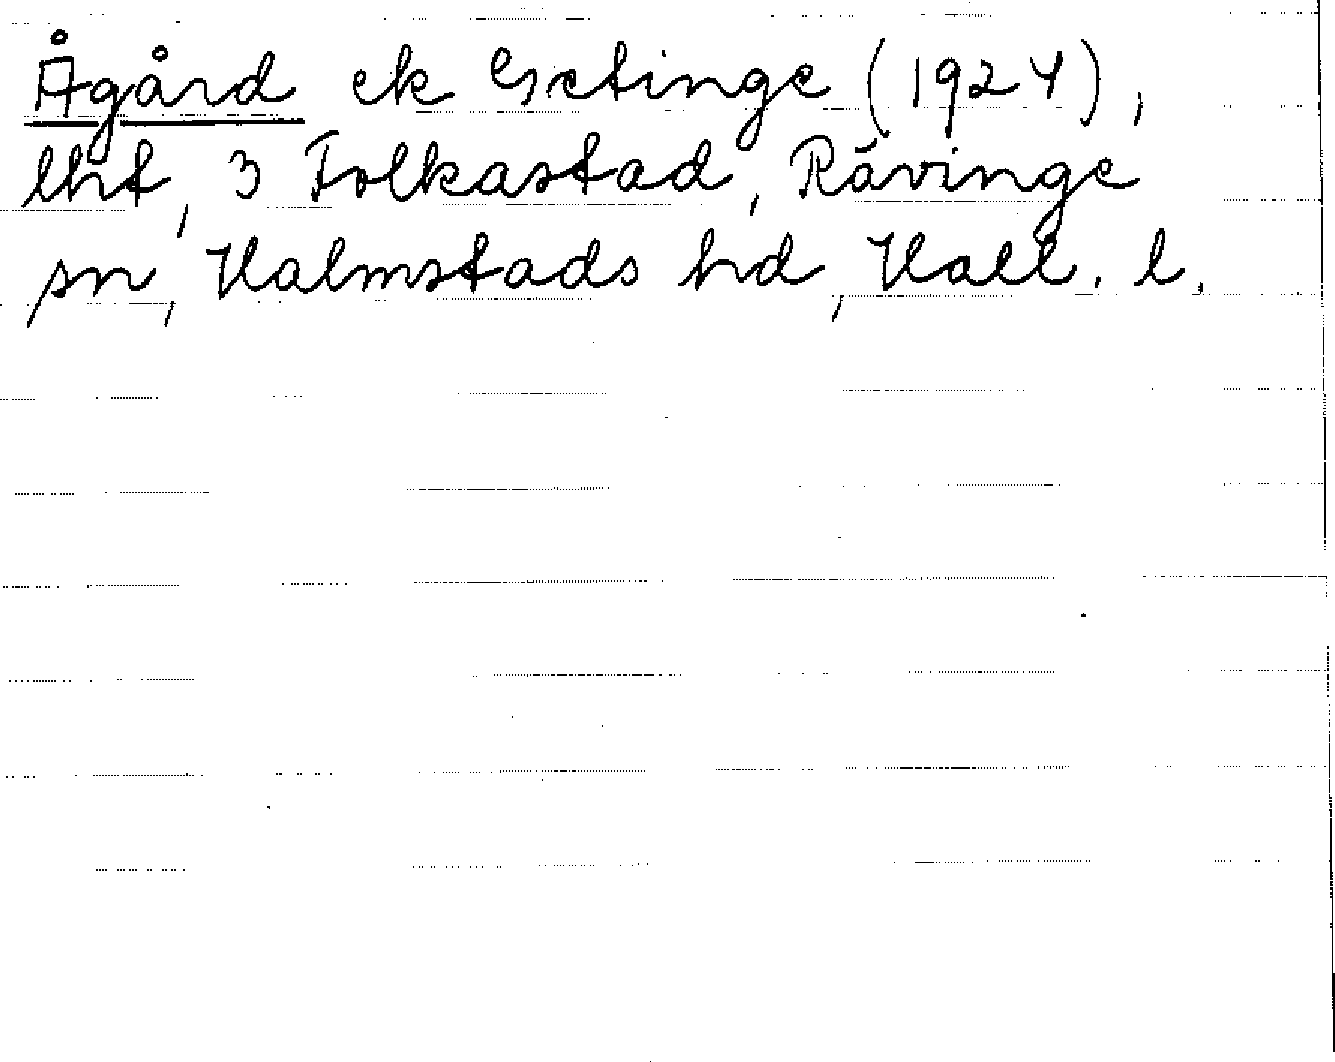 Ågård ek Getinge (1924),
lht, 3 Folkastad, Rävinge
sn, Halmstads hd, Hall. l.